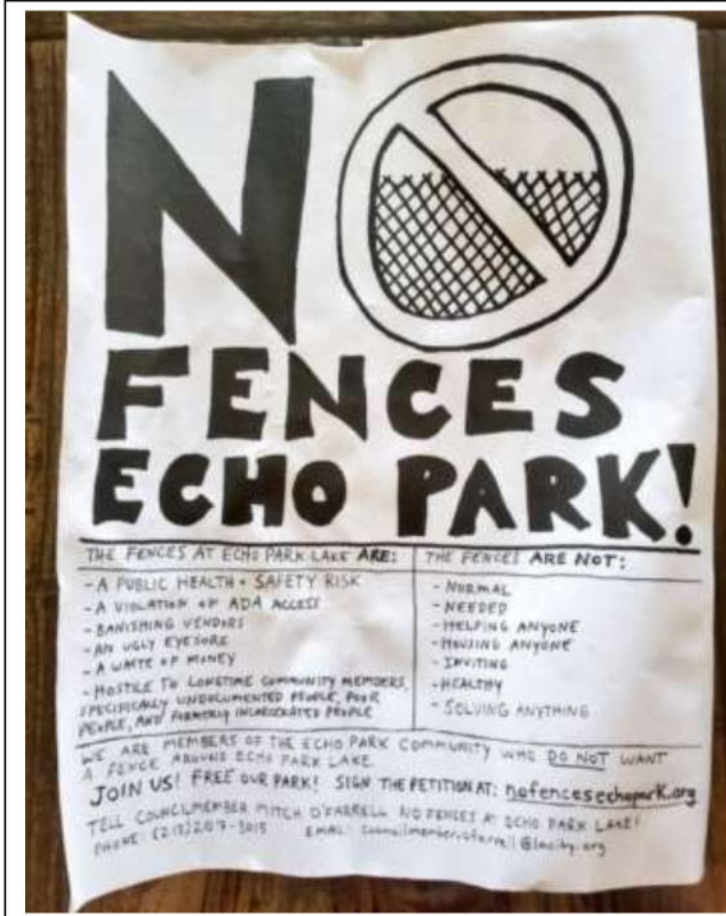 NO
FENCES
ECHO PARK!
THE FENCES AT ECHO PARK LAKE ARE:
- A PUBLIC HEALTH + SAFETY RISK
- A VIOLATION OF ADA ACCESS
- BANISHING VENDORS
- AN UGLY EYESORE
- A WASTE OF MONEY
- HOSTILE TO LONGTIME COMMUNITY MEMBERS,
SPECIFICALLY UNDOCUMENTED PEOPLE, POOR
PEOPLE, AND FORMERLY INCARCERATED PEOPLE
THE FENCES ARE NOT:
- NORMAL
- NEEDED
- HELPING ANYONE
- HOUSING ANYONE
- INVITING
- HEALTHY
- SOLVING ANYTHING
WE ARE MEMBERS OF THE ECHO PARK COMMUNITY WHO DO NOT WANT
A FENCE AROUND ECHO PARK LAKE.
JOIN US! FREE OUR PARK! SIGN THE PETITION AT: nofencesechopark.org
TELL COUNCILMEMBER MITCH O'FARRELL NO FENCES AT ECHO PARK LAKE!
PHONE: (213) 207-3015 EMAIL: councilmember.ofarrell@lacity.org